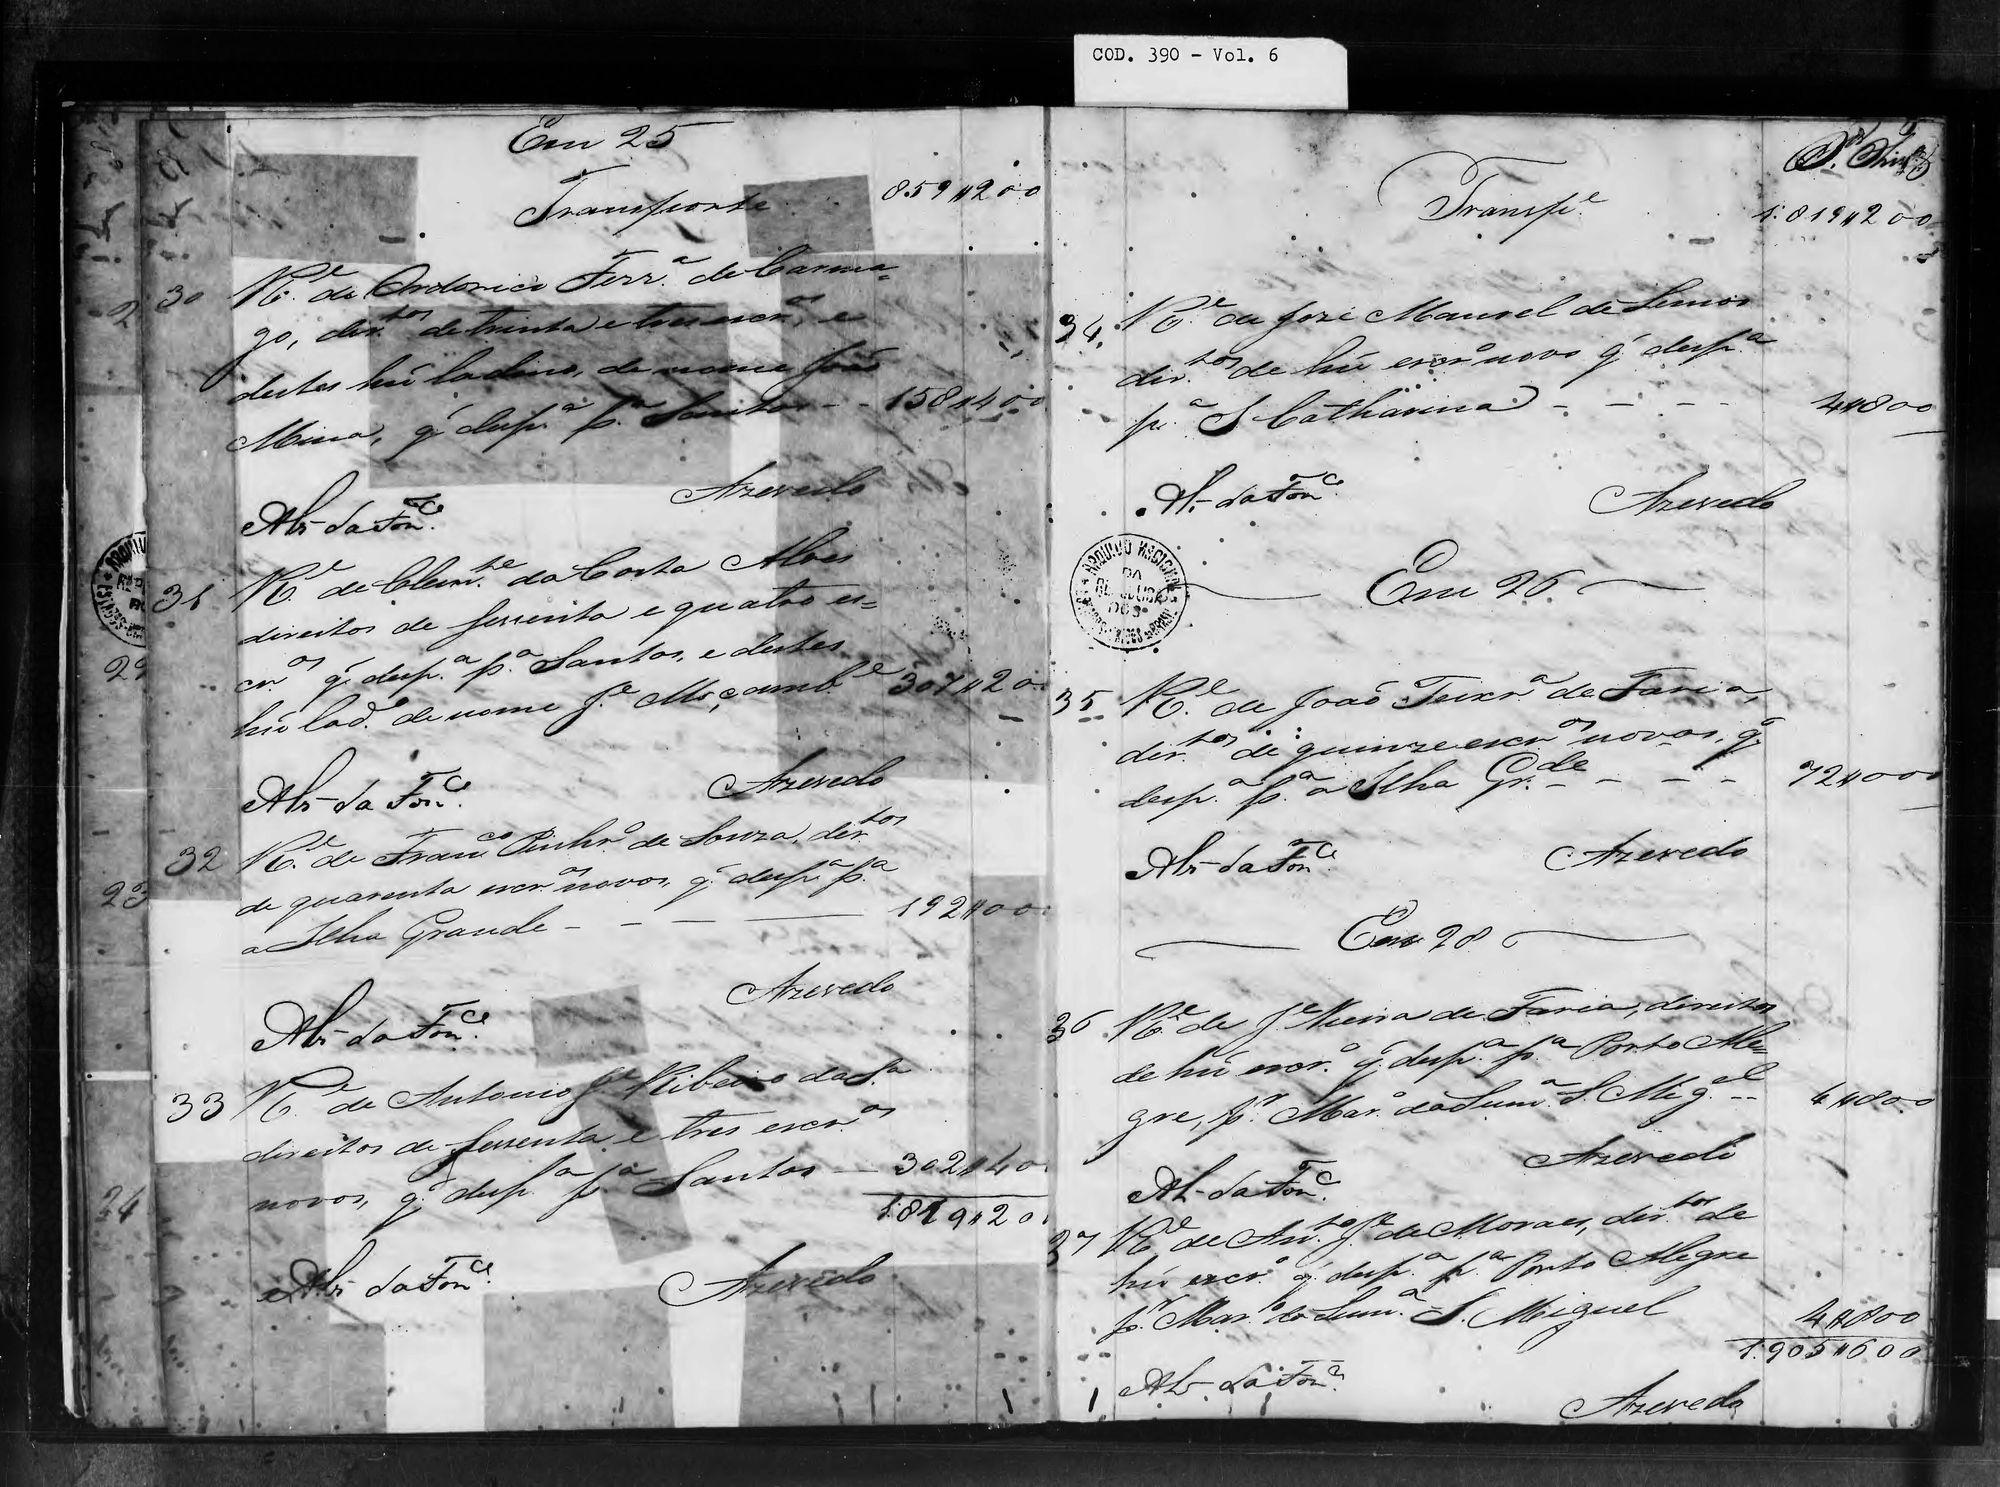 COD. 390 - Vol. 6
Em 25
Transporte 859#200
30 R.e de Ordorico Ferr.a de Carma=
go, dir.tos de trinta e tres escr.os, e
destes hũ ladino, de nome João
Mina, q̃ desp.a p.a Santos - - 158#400
Azevedo
Alz da Fon.ca
31 R.e de Clem.te da Costa Alves
direitos de sessenta e quatro es=
cr.os q̃ desp.a p.a Santos, e destes
hũ lad.o de nome J.e Moçamb.e 307#20
Azevedo
Alz da Fon.ca
32 R.e de Fran.co Pinhr.o de Souza, dir.tos
de quarenta escr.os novos, q̃ desp.a p.a
a Ilha Grande - - - 192#00
Azevedo
Alz da Fon.ca
33 R.e de Antonio J.e Ribeiro da S.a
direitos de sessenta e tres escr.os
novos, q̃ desp.a p.a Santos - 302#40
1:819#20
Alz da Fon.ca Azevedo
Transp.e 1:819#200
34 R.e de José Manoel de Lemos
dir.tos de hũ escr.o novo q̃ desp.a
p.a S Catharina - - - - 4#800
Al. da Fon.ca Azevedo
Em 26
35 R.e de João Teixr.a de Faria,
dir.tos de quinze escr.os novos, q̃
desp.a p.a a Ilha Gr.de - - - 72#000
Alz da Fon.ca Azevedo
Em 28
36 R.e de J.e Vieira de Faria, direitos
de hũ escr.o q̃ desp.a p.a Porto Ale=
gre, p.r Mar. da Sum.a S. Mig.el -- 4#800
Azevedo
Alz da Fon.ca
37 R.e de An.to J.e de Moraes, dir.tos de
hũ escr.o q̃ desp.a p.a Porto Alegre
p.r Mar. da Sum.a S. Miguel 4#800
1:905#600
Alz da Fon.ca
Azevedo
29
24
ARQUIVO NACIONAL